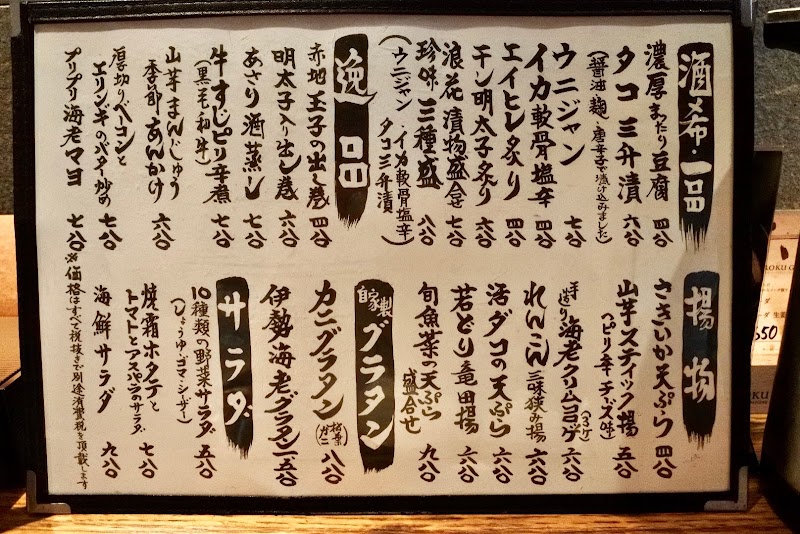 酒希・一品
濃厚まったり豆腐 四八〇
タコ三升漬 六八〇
(醤油・麹・唐辛子で漬け込みました)
ウニジャン 七八〇
イカ軟骨塩辛 四八〇
エイヒレ炙り 四八〇
チン明太子炙り 六八〇
浪花漬物盛合せ 七八〇
珍味三種盛 八八〇
(ウニジャン・イカ軟骨塩辛
タコ三升漬)
逸品
赤地玉子の出し巻 四八〇
明太子入り出し巻 六八〇
あさり酒蒸し 七八〇
牛すじピリ辛煮 七八〇
(黒毛和牛)
山芋まんじゅう
季節あんかけ 六八〇
厚切りベーコンと
エリンギのバター炒め 七八〇
プリプリ海老マヨ 七八〇
揚物
さきいか天ぷら 四八〇
山芋スティック揚 五八〇
(ピリ辛チーズ味)
手造り海老クリームコロッケ(2ヶ) 六八〇
れんこん三味挟み揚 六八〇
活ダコの天ぷら 六八〇
若どり竜田揚 六八〇
旬魚菜の天ぷら
盛合せ 九八〇
自家製グラタン
カニグラタン(松葉ガニ) 八八〇
伊勢海老グラタン 一五八〇
サラダ
10種類の野菜サラダ 五八〇
(しょうゆ・ゴマ・シーザー)
焼霜ホタテと
トマトとアスパラのサラダ 七八〇
海鮮サラダ 九八〇
※価格はすべて税抜きで別途消費税を頂戴します
650